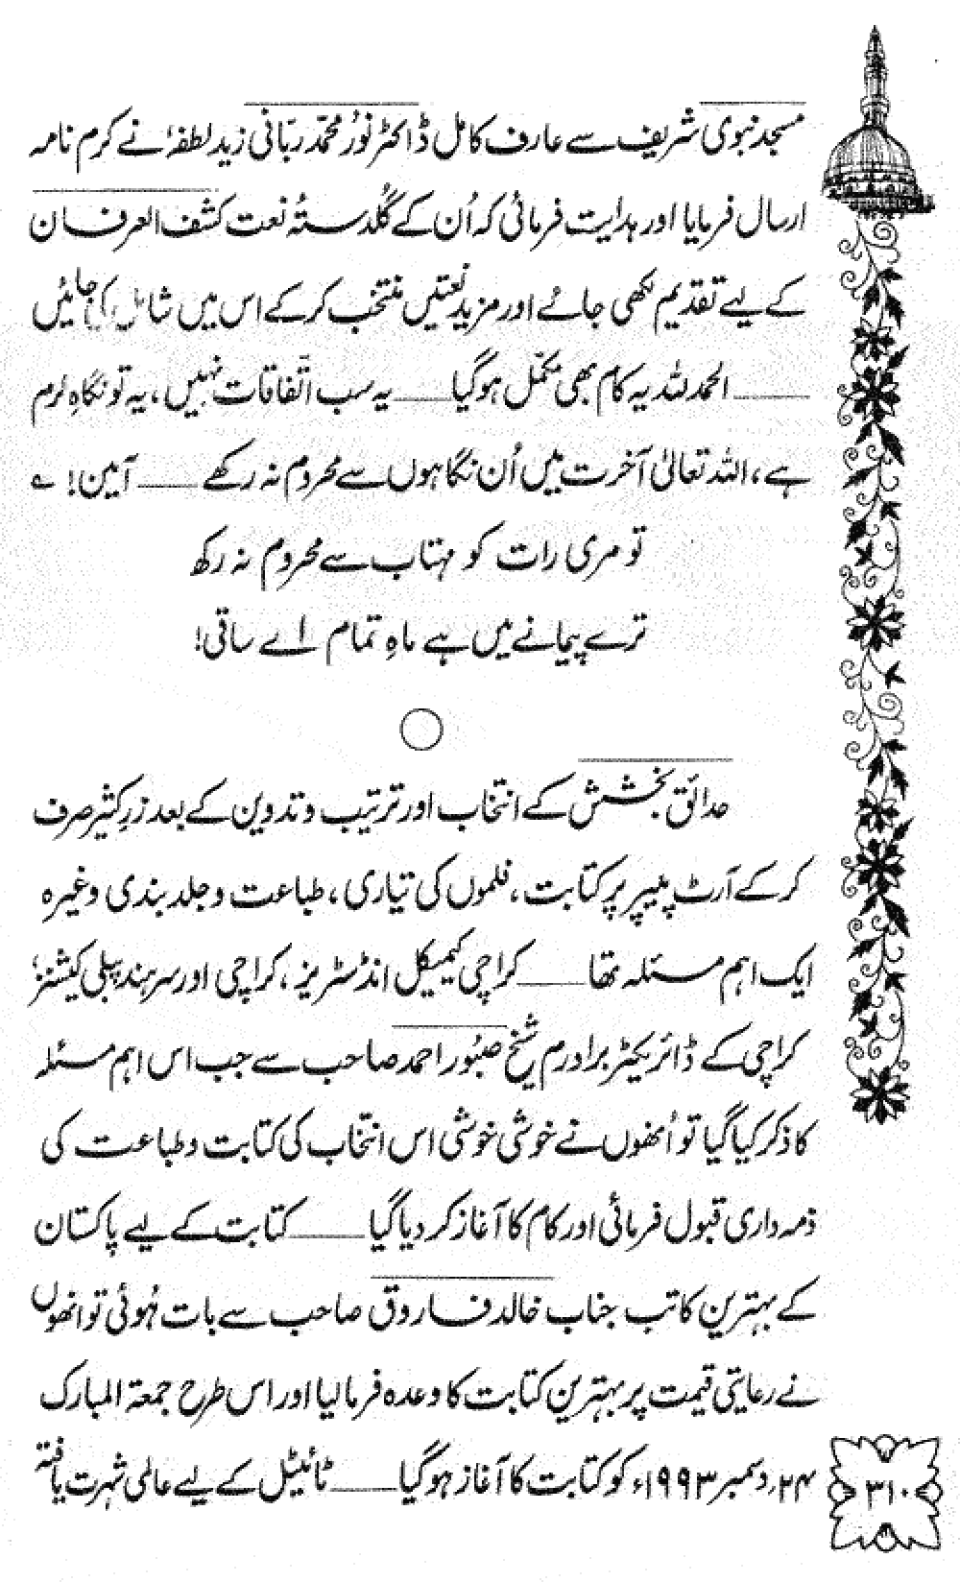 مسجد نبوی شریف سے عارف کامل ڈاکٹر نورُ محمّد ربّانی زید لطفہٗ نے کرم نامہ
ارسال فرمایا اور ہدایت فرمائی کہ اُن کے گُلدستۂ نعت کشف العرفان
کے لیے تقدیم لکھی جائے اور مزید نعتیں منتخب کر کے اس میں شامل کی جائیں
ــــــ الحمد للہ یہ کام بھی مکمّل ہو گیا ــــــ یہ سب اتّفاقات نہیں، یہ تو نگاہِ کرم
ہے، اللہ تعالیٰ آخرت میں اُن نگاہوں سے محروم نہ رکھے ــــــ آمین! ؎
تو مری رات کو مہتاب سے محروم نہ رکھ
ترے پیمانے میں ہے ماہِ تمام اے ساقی!
حدائق بخشش کے انتخاب اور ترتیب و تدوین کے بعد زرِ کثیر صرف
کر کے آرٹ پیپر پر کتابت، فلموں کی تیاری، طباعت و جلد بندی وغیرہ
ایک اہم مسئلہ تھا ــــــ کراچی کیمیکل انڈسٹریز، کراچی اور سرہند پبلی کیشنز،
کراچی کے ڈائریکٹر برادرم شیخ صبُور احمد صاحب سے جب اس اہم مسئلہ
کا ذکر کیا گیا تو اُنھوں نے خوشی خوشی اس انتخاب کی کتابت و طباعت کی
ذمہ داری قبول فرمائی اور کام کا آغاز کر دیا گیا ــــــ کتابت کے لیے پاکستان
کے بہترین کاتب جناب خالد فاروق صاحب سے بات ہُوئی تو انھوں
نے رعایتی قیمت پر بہترین کتابت کا وعدہ فرما لیا اور اس طرح جمعۃ المبارک
۲۴؍ دسمبر ۱۹۹۳ء کو کتابت کا آغاز ہو گیا ــــــ ٹائیٹل کے لیے عالمی شہرت یافتہ
۳۱۰